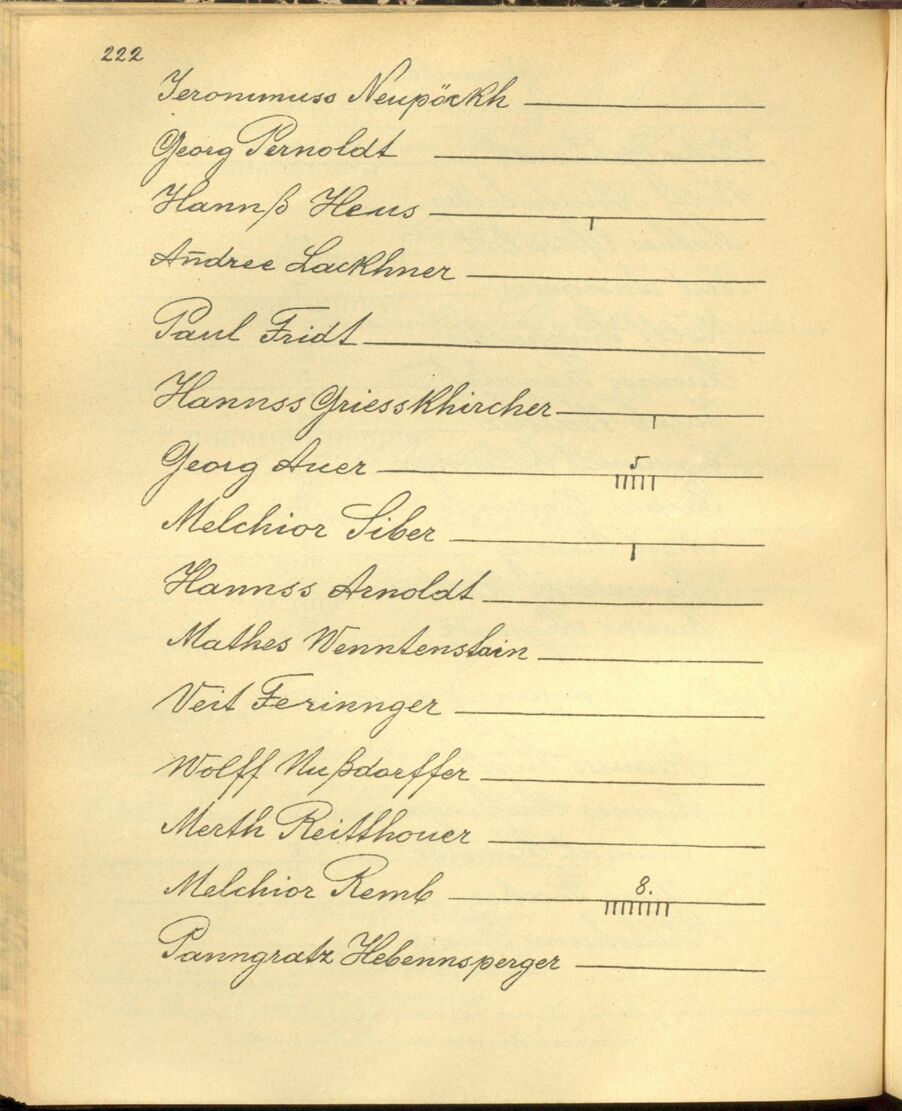 222
Jeronimuss Neupöckh
Georg Pernoldt
Hannß Heus
Andree Lackhner
Paul Fridt
Hannss Griesskhircher
Georg Auer 5
Melchior Siber
Hannss Arnoldt
Mathes Wenntenstain
Veit Ferinnger
Wolff Nußdorffer
Merth Reitthouer
Melchior Remb 8.
Panngratz Hebennsperger